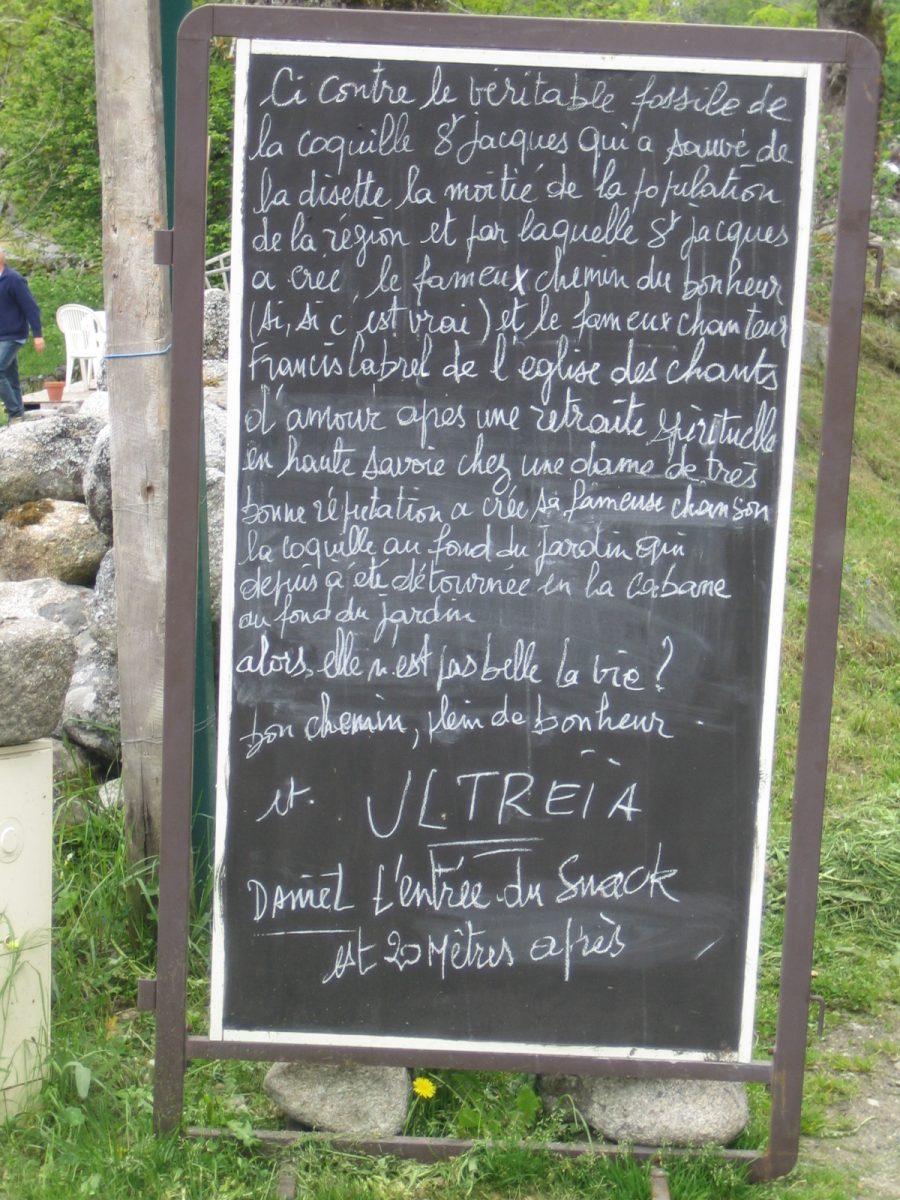 Ci contre le véritable fossile de
la coquille St jacques qui a sauvé de
la disette la moitié de la population
de la région et par laquelle St jacques
a crée le fameux chemin du bonheur
(si, si c'est vrai) et le fameux chanteur
Francis Cabrel de l'eglise des chants
d'amour apres une retraite spirituelle
en haute savoie chez une dame de très
bonne réputation a crée sa fameuse chanson
la coquille au fond du jardin qui
depuis à été détournée en la cabane
au fond du jardin
alors elle n'est pas belle la vie ?
bon chemin, plein de bonheur.
et. ULTREÏA
Daniel L'entrée du Snack
est 20 Mètres après